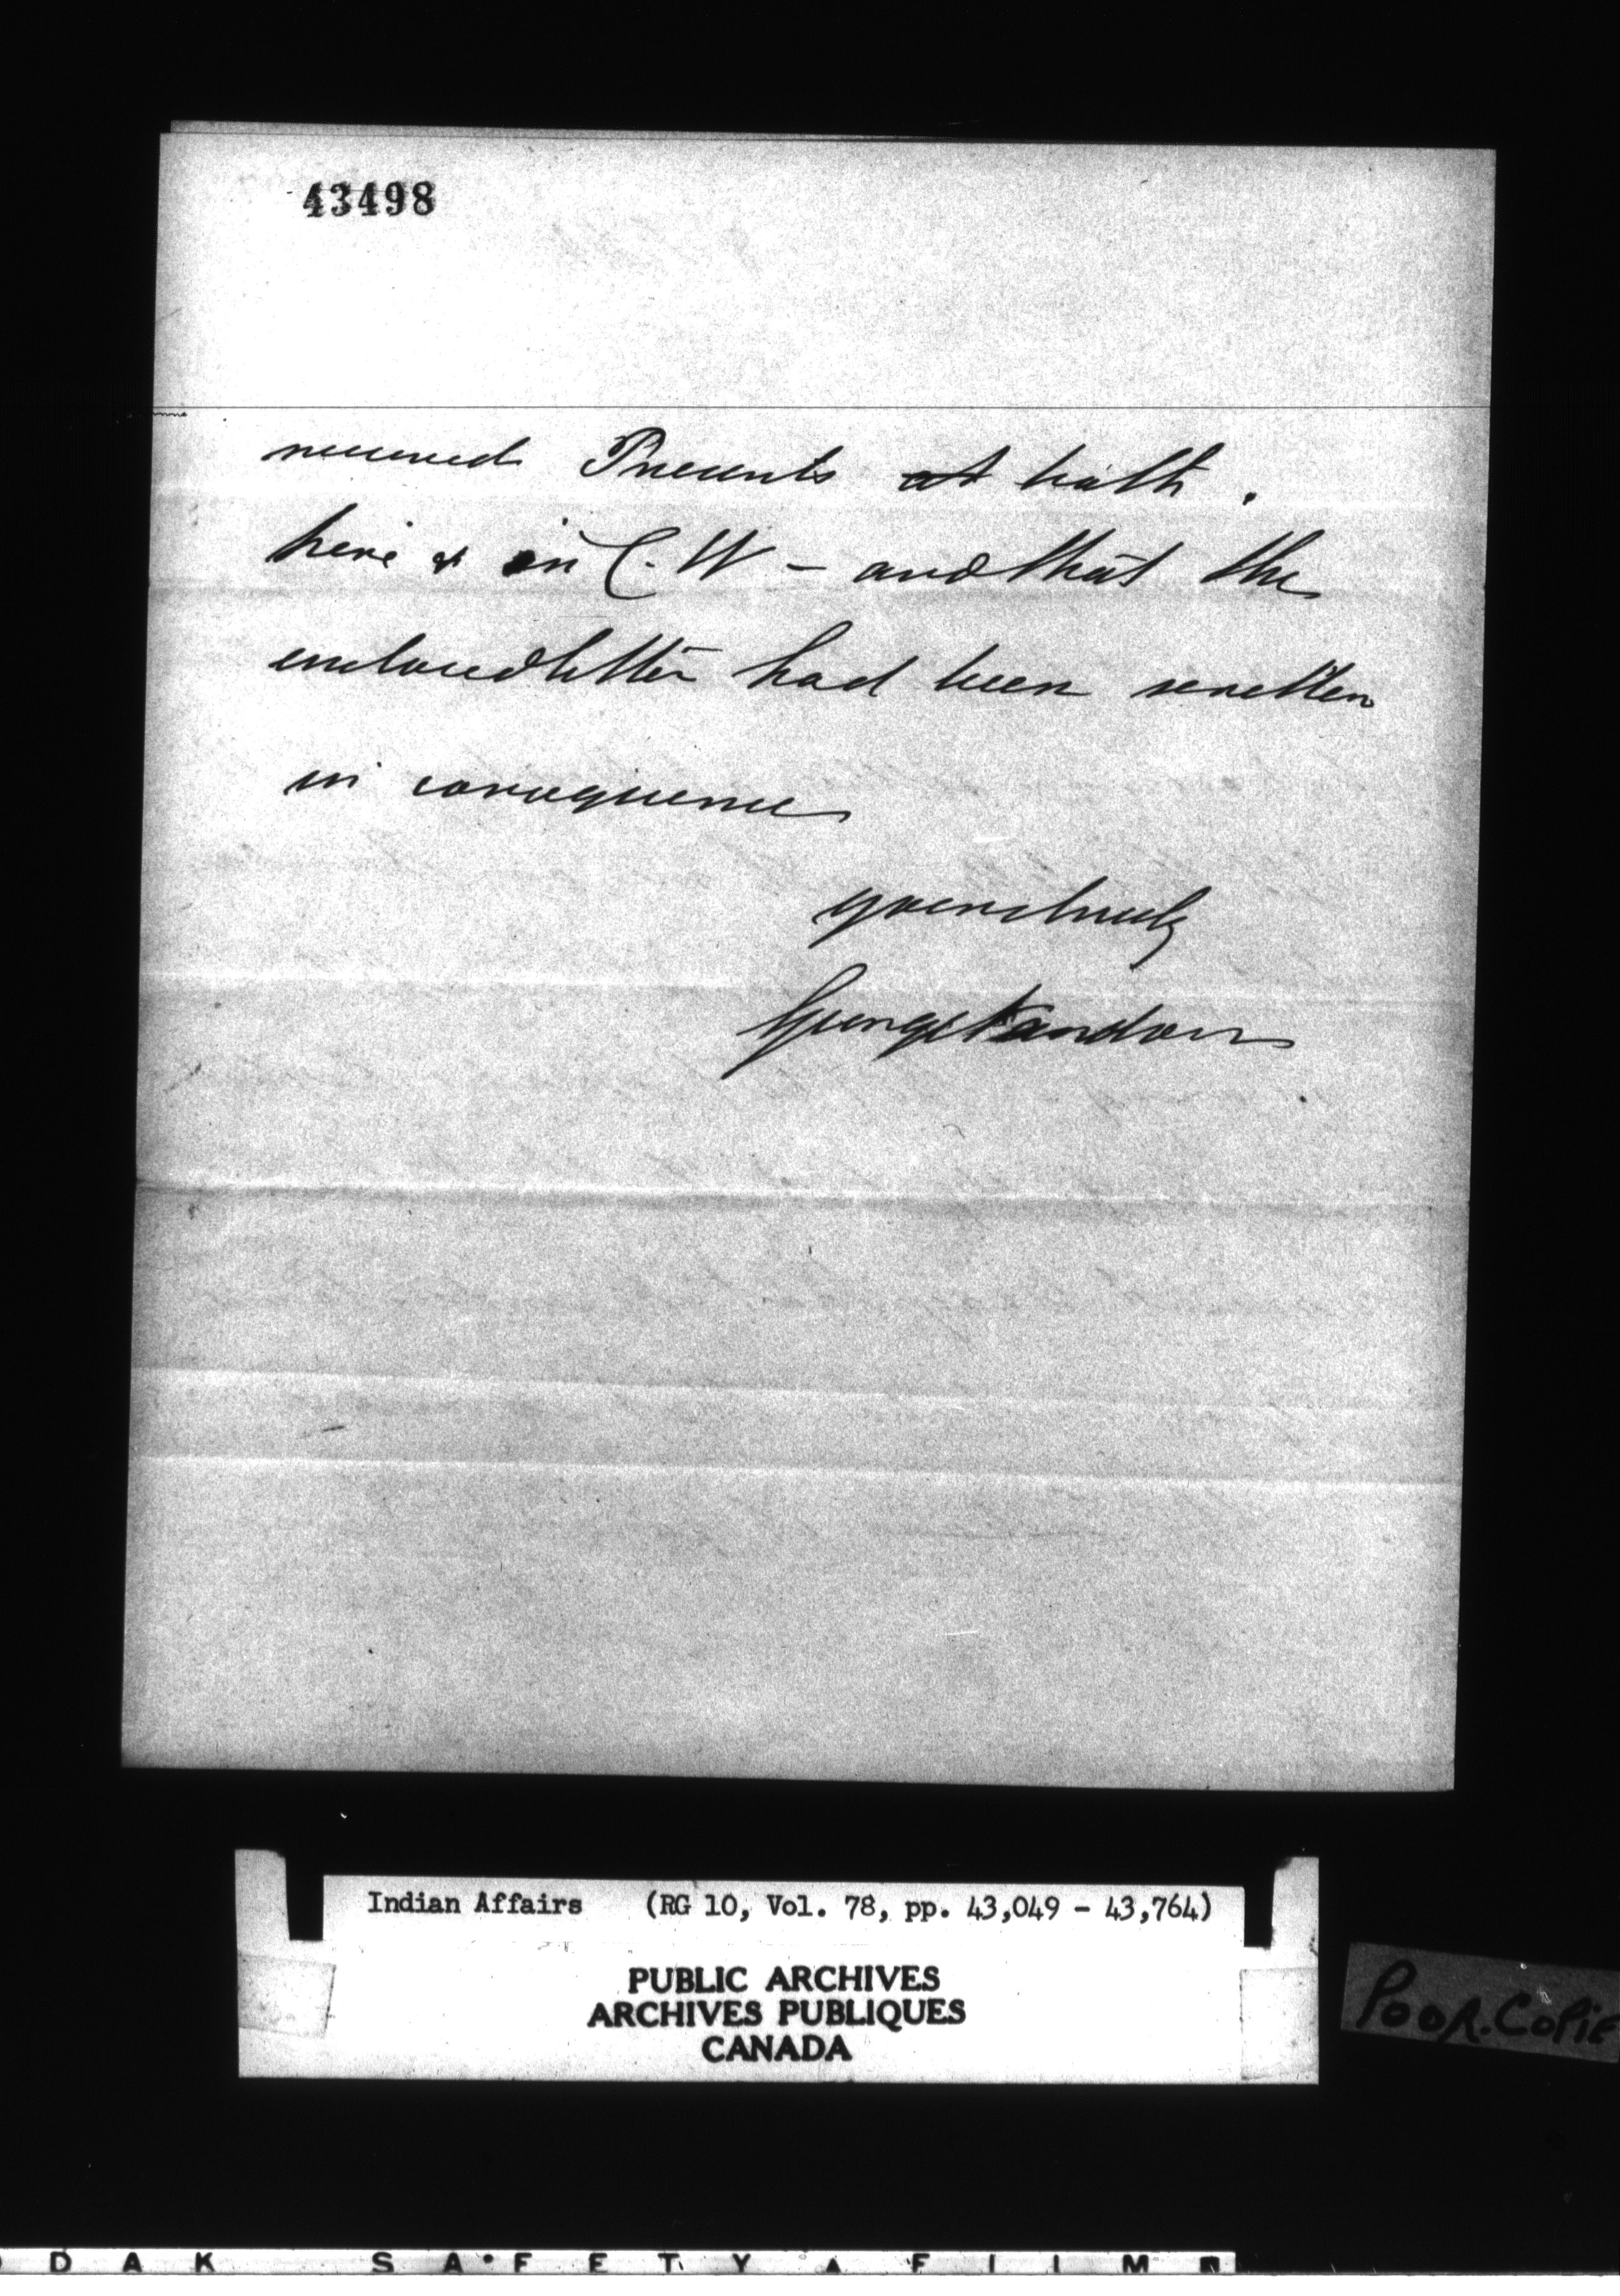 43498
received Presents at both
here & in C. W - and that the
enclosed letter had been written
in consequence
yours truly
George
Indian Affairs (RG 10, Vol. 78, pp. 43,049 - 43,764)
PUBLIC ARCHIVES
ARCHIVES PUBLIQUES
CANADA
POOR.COPIE
DAK SAFETY FILM